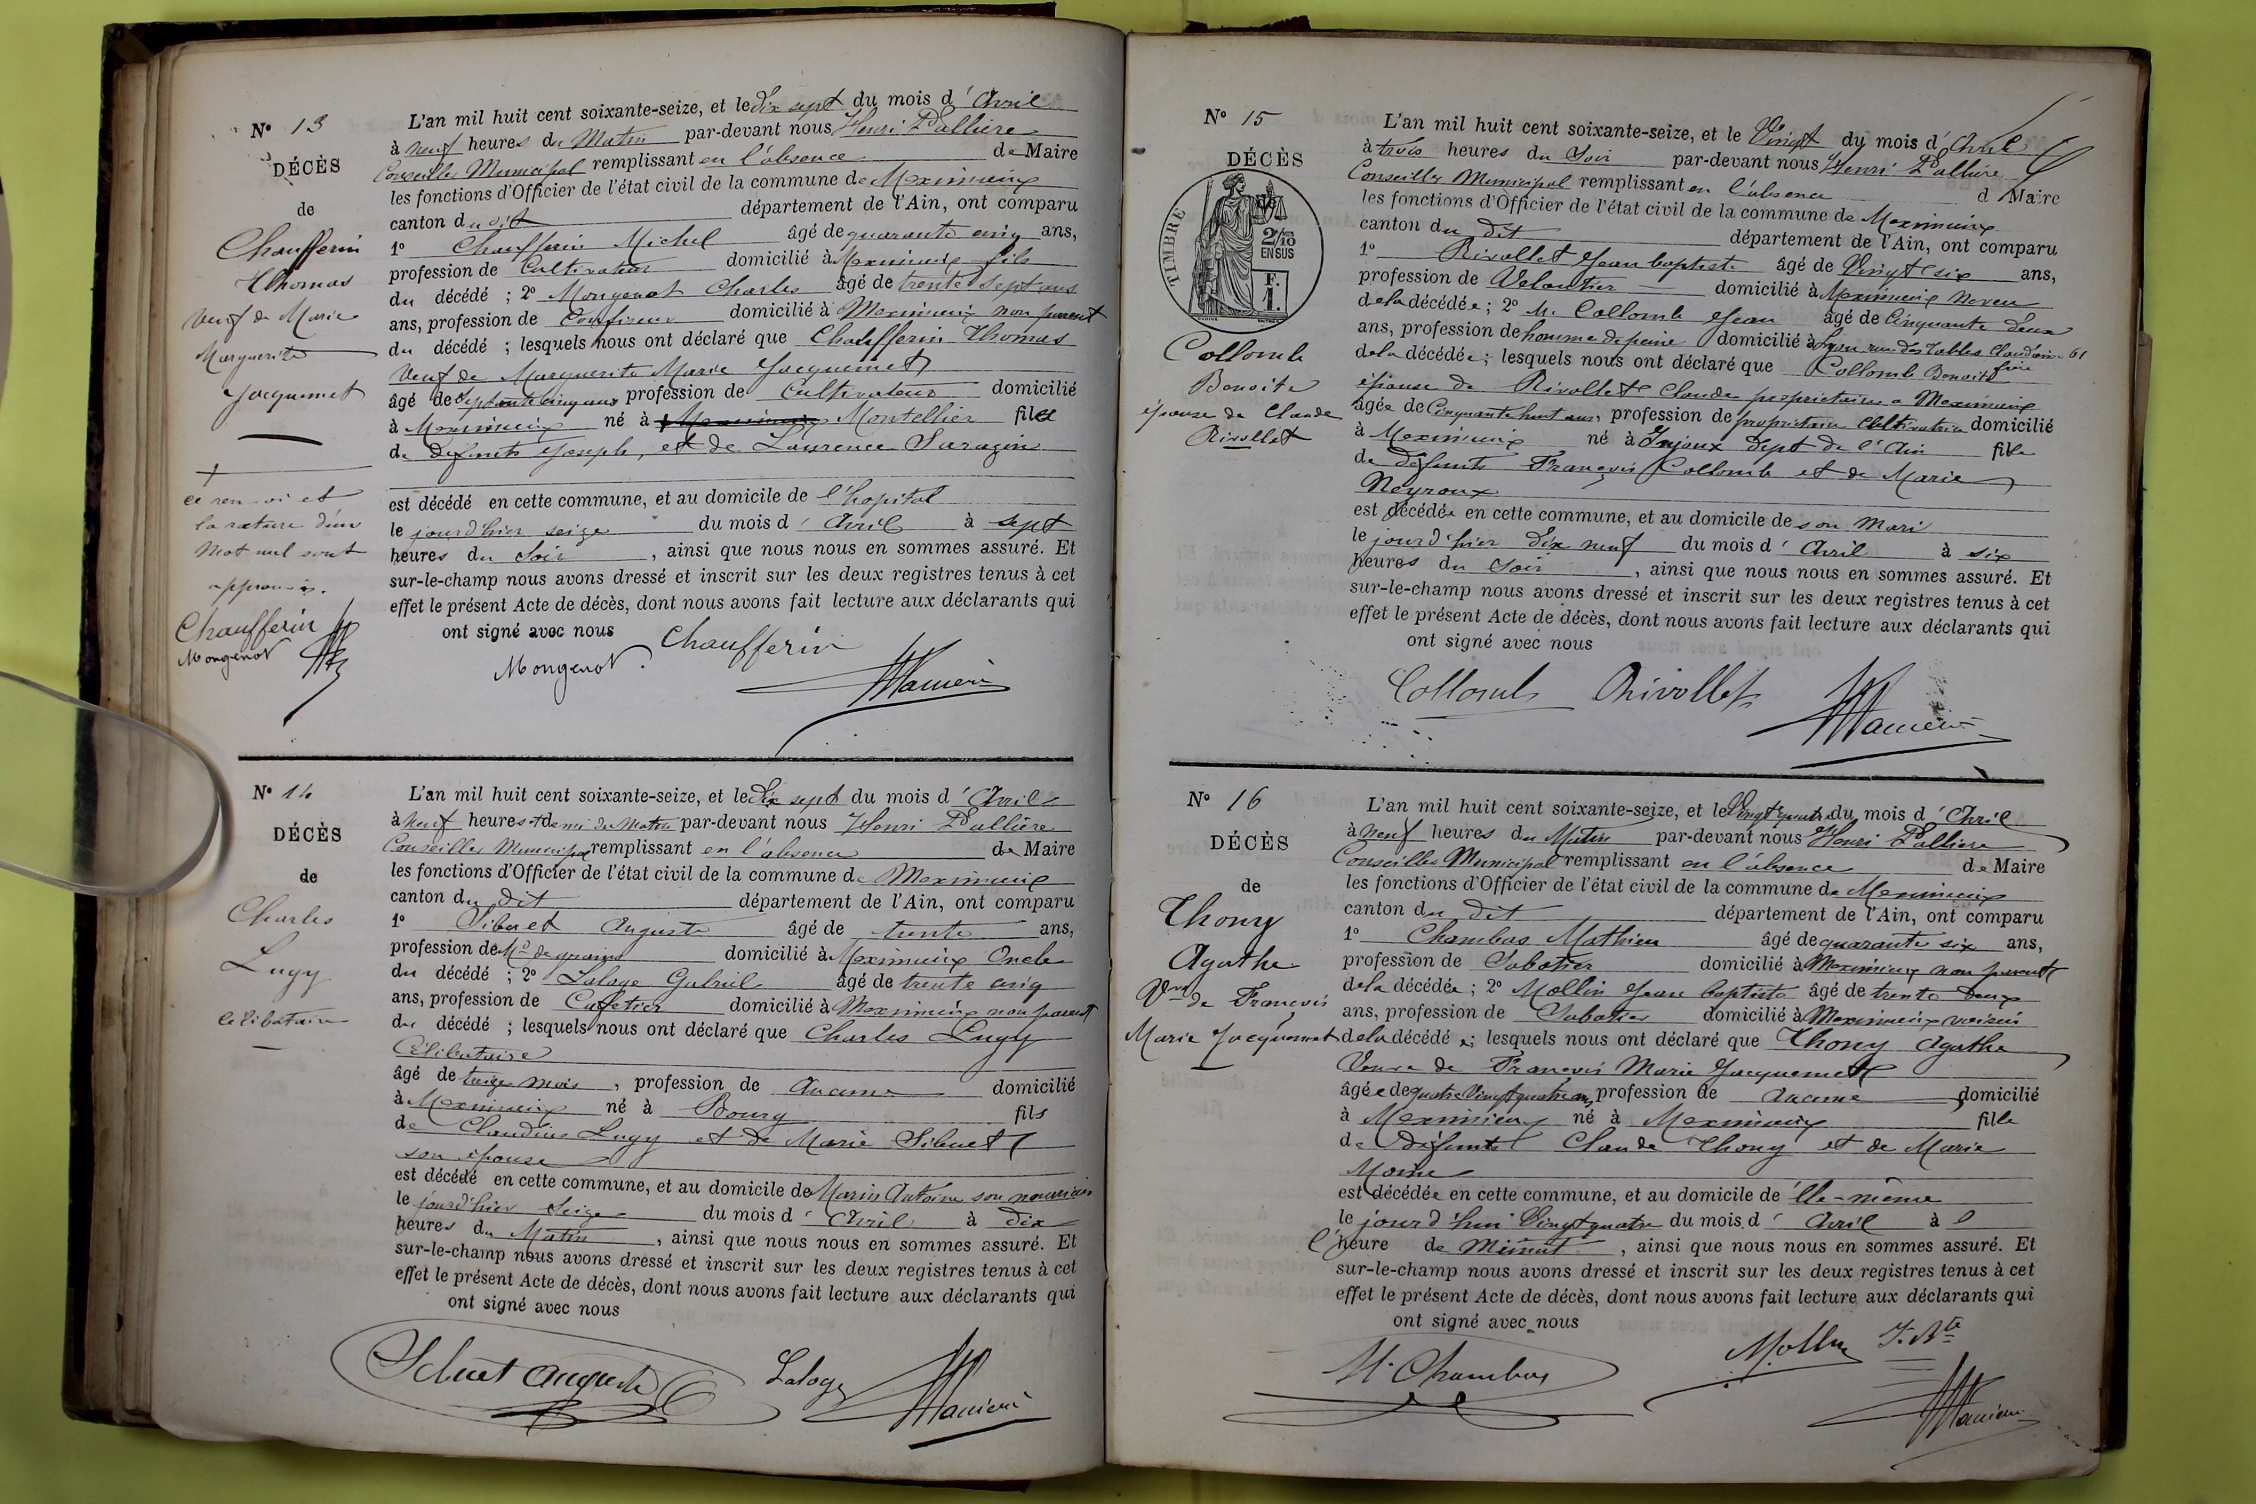 N° 13
DÉCÈS
de
Chaufferin
Thomas
veuf de Marie
Marguerite
Jacquemet
ce renvoi et
la rature d'un
mot nul sont
approuvés.
Chaufferin
Mongenot
L'an mil huit cent soixante-seize, et le dix sept du mois d' Avril
à neuf heures du Matin par-devant nous Henri Pallière
Conseiller Municipal remplissant en l'absence de Maire
les fonctions d'Officier de l'état civil de la commune de Meximieux
canton du dit département de l'Ain, ont comparu
1° Chaufferin Michel âgé de quarante cinq ans,
profession de Cultivateur domicilié à Meximieux fils
du décédé ; 2° Mongenot Charles âgé de trente sept ans
ans, profession de Confiseur domicilié à Meximieux non parent
du décédé ; lesquels nous ont déclaré que Chaufferin Thomas
Veuf de Marguerite Marie Jacquemet
âgé de septante cinq ans profession de Cultivateur domicilié
à Meximieux né à Meximieux Montellier fils
de défunts Joseph, et de Laurence Sarazin
est décédé en cette commune, et au domicile de l'hopital
le jourd'hier seize du mois d' Avril à sept
heures du Soir , ainsi que nous nous en sommes assuré. Et
sur-le-champ nous avons dressé et inscrit sur les deux registres tenus à cet
effet le présent Acte de décès, dont nous avons fait lecture aux déclarants qui
ont signé avec nous
Chaufferin
Mongenot.
N° 14
DÉCÈS
de
Charles
Lugy
célibataire
L'an mil huit cent soixante-seize, et le Dix sept du mois d' Avril
à Neuf heures et demi du Matin par-devant nous Henri Pallière
Conseiller Municipal remplissant en l'absence de Maire
les fonctions d'Officier de l'état civil de la commune de Meximieux
canton du dit département de l'Ain, ont comparu
1° Sibuet Auguste âgé de trente ans,
profession de Md de grains domicilié à Meximieux Oncle
du décédé ; 2° Laloge Gabriel âgé de trente cinq
ans, profession de Cafetier domicilié à Meximieux non parent
du décédé ; lesquels nous ont déclaré que Charles Lugy
Célibataire
âgé de treize mois , profession de Aucune domicilié
à Meximieux né à Bourg fils
de Claudius Lugy et de Marie Sibuet
son épouse
est décédé en cette commune, et au domicile de Marin Antoine son nourricier
le jourd'hier Seize du mois d' Avril à dix
heures du Matin , ainsi que nous nous en sommes assuré. Et
sur-le-champ nous avons dressé et inscrit sur les deux registres tenus à cet
effet le présent Acte de décès, dont nous avons fait lecture aux déclarants qui
ont signé avec nous
Sibuet Auguste
Laloge
N° 15
DÉCÈS
TIMBRE
2/10
EN SUS
F.
1.
Collomb
Benoite
épouse de Claude
Rivollet
L'an mil huit cent soixante-seize, et le Vingt du mois d' Avril
à trois heures du Soir par-devant nous Henri Pallière
Conseiller Municipal remplissant en l'absence d Maire
les fonctions d'Officier de l'état civil de la commune de Meximieux
canton du dit département de l'Ain, ont comparu
1° Rivollet Jean baptiste âgé de Vingt six ans,
profession de Veloutier domicilié à Meximieux Neveu
de la décédée ; 2° M. Collomb Jean âgé de Cinquante deux
ans, profession de homme de peine domicilié à Lyon rue des Tables Claudiennes 61
de la décédée ; lesquels nous ont déclaré que Collomb Benoite frère
épouse de Rivollet Claude propriétaire a Meximieux
âgée de Cinquante huit ans, profession de propriétaire Cultivatrice domicilié
à Meximieux né à Injoux dept de l'Ain fille
de défunts François Collomb et de Marie
Neyroux
est décédée en cette commune, et au domicile de son Mari
le jourd'hier Dix neuf du mois d' Avril à six
heures du Soir , ainsi que nous nous en sommes assuré. Et
sur-le-champ nous avons dressé et inscrit sur les deux registres tenus à cet
effet le présent Acte de décès, dont nous avons fait lecture aux déclarants qui
ont signé avec nous
Collomb Rivollet
N° 16
DÉCÈS
de
Thony
Agathe
Vve de François
Marie Jacquemet
L'an mil huit cent soixante-seize, et le Vingt quatre du mois d' Avril
à Neuf heures du Matin par-devant nous Henri Pallière
Conseiller Municipal remplissant en l'absence de Maire
les fonctions d'Officier de l'état civil de la commune de Meximieux
canton du dit département de l'Ain, ont comparu
1° Chambas Mathieu âgé de quarante six ans,
profession de Sabotier domicilié à Meximieux non parent
de la décédée ; 2° Mollin Jean baptiste âgé de trente deux
ans, profession de Sabotier domicilié à Meximieux voisin
de la décédée ; lesquels nous ont déclaré que Thony Agathe
Veuve de François Marie Jacquemet
âgée de quatre Vingt quatre ans, profession de Aucune domicilié
à Meximieux né à Meximieux fille
de défunts Claude Thony et de Marie
Moine
est décédée en cette commune, et au domicile de elle-même
le jourd'hui Vingt quatre du mois d' Avril à
l'heure de Minuit , ainsi que nous nous en sommes assuré. Et
sur-le-champ nous avons dressé et inscrit sur les deux registres tenus à cet
effet le présent Acte de décès, dont nous avons fait lecture aux déclarants qui
ont signé avec nous
M. Chambas
Mollin J. Bte